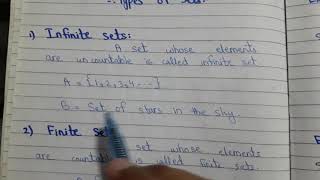 Types of Sets:
1) Infinite sets:
A set whose elements
are uncountable is called infinite set
A = {1,2,3,4 ---}
B = Set of stars in the sky.
2) Finite set
set whose elements
are countable is called finite sets.